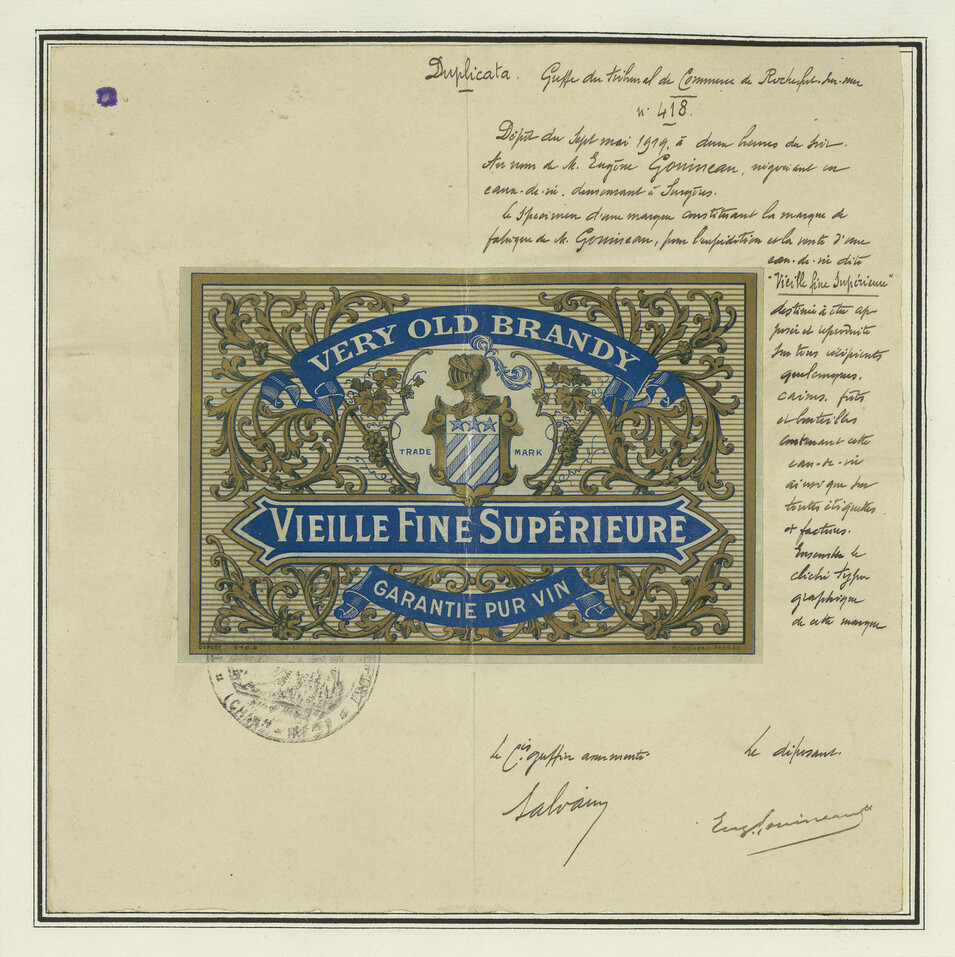 Duplicata. Greffe du tribunal de Commerce de Rochefort-sur-mer
n° 418.
Dépôt du Sept mai 1919, à deux heures du soir.
Au nom de M. Eugène Gouineau, négociant en
eaux-de-vie, demeurant à Surgères.
Le specimen d'une marque constituant la marque de
fabrique de M. Gouineau, pour l'expédition et la vente d'une
eau-de-vie dite
"Vieille fine Supérieure"
destinée à être ap-
posée et reproduite
sur tous récipients
quelconques,
caisses, fûts
et bouteilles
contenant cette
eau-de-vie
ainsi que sur
toutes étiquettes
et factures.
Ensemble le
cliché typo-
graphique
de cette marque
VERY OLD BRANDY
TRADE MARK
VIEILLE FINE SUPÉRIEURE
GARANTIE PUR VIN
DÉPOSÉ.
Le Cis greffier assermenté
Le déposant.
Salvany
Eug. Gouineau